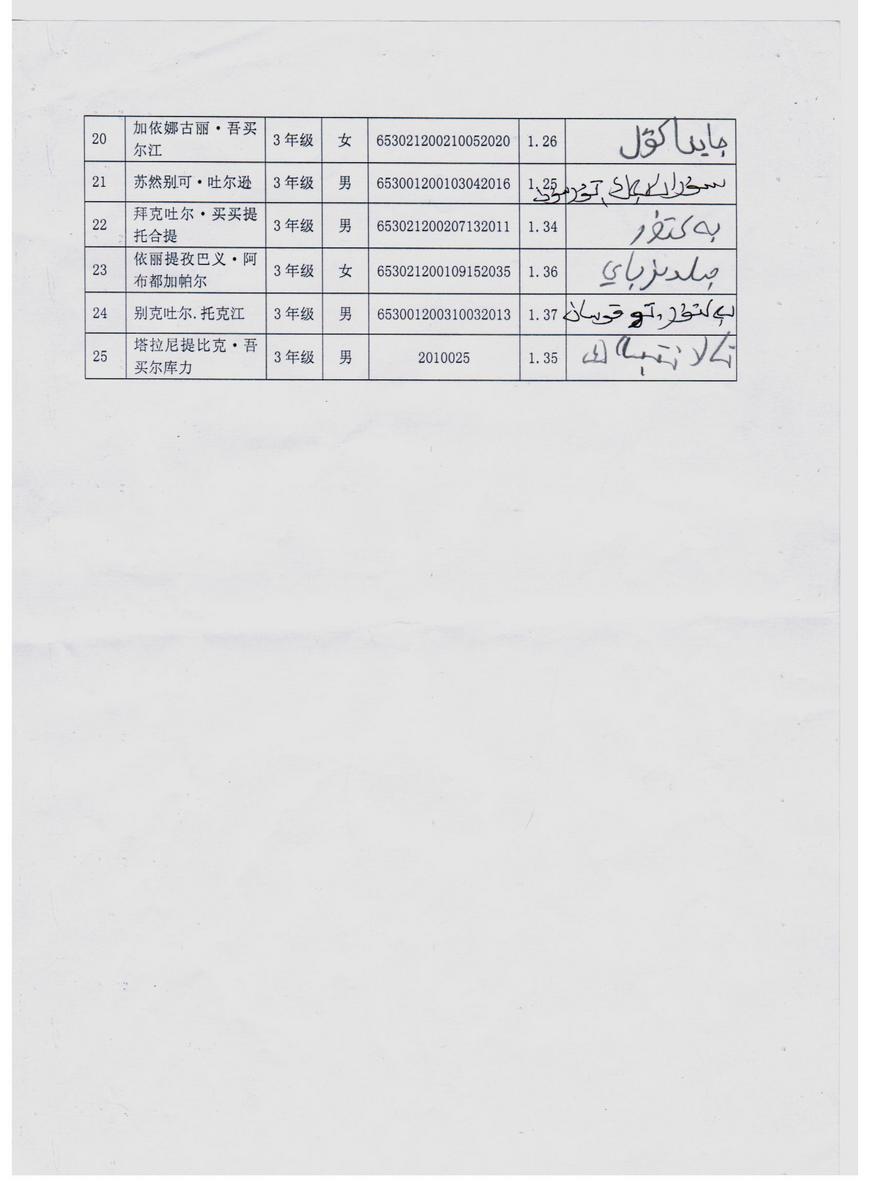 20 加依娜古丽·吾买 3年级 女 653021200210052020 1.26 جايناگۈل
尔江
21 苏然别可·吐尔逊 3年级 男 653001200103042016 1.25
22 拜克吐尔·买买提 3年级 男 653021200207132011 1.34 بەكتۇر
托合提
23 依丽提孜巴义·阿 3年级 女 653021200109152035 1.36 جىلدىزباي
布都加帕尔
24 别克吐尔.托克江 3年级 男 653001200310032013 1.37
25 塔拉尼提比克·吾 3年级 男 2010025 1.35
买尔库力